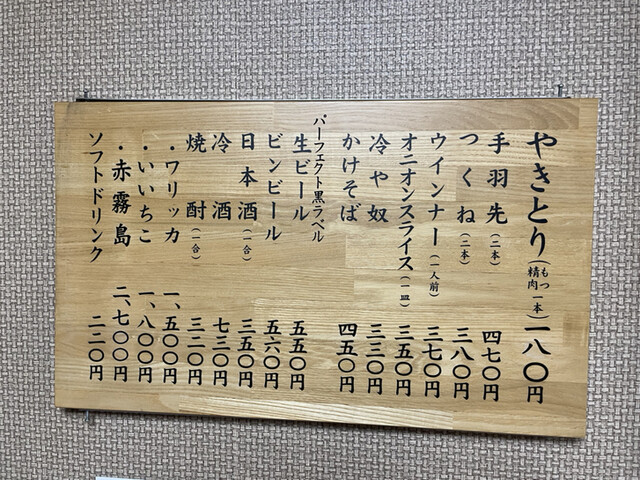 やきとり（もつ 精肉 一本）一八〇円
手羽先（二本）四七〇円
つくね（二本）三八〇円
ウインナー（一人前）三七〇円
オニオンスライス（一皿）二五〇円
冷や奴 三三〇円
かけそば 四五〇円
パーフェクト黒ラベル
生ビール 五五〇円
ビンビール 五六〇円
日本酒（一合）三五〇円
冷酒 七三〇円
焼酎（一合）三二〇円
・ワリッカ 一、五〇〇円
・いいちこ 一、八〇〇円
・赤霧島 二、七〇〇円
ソフトドリンク 二二〇円